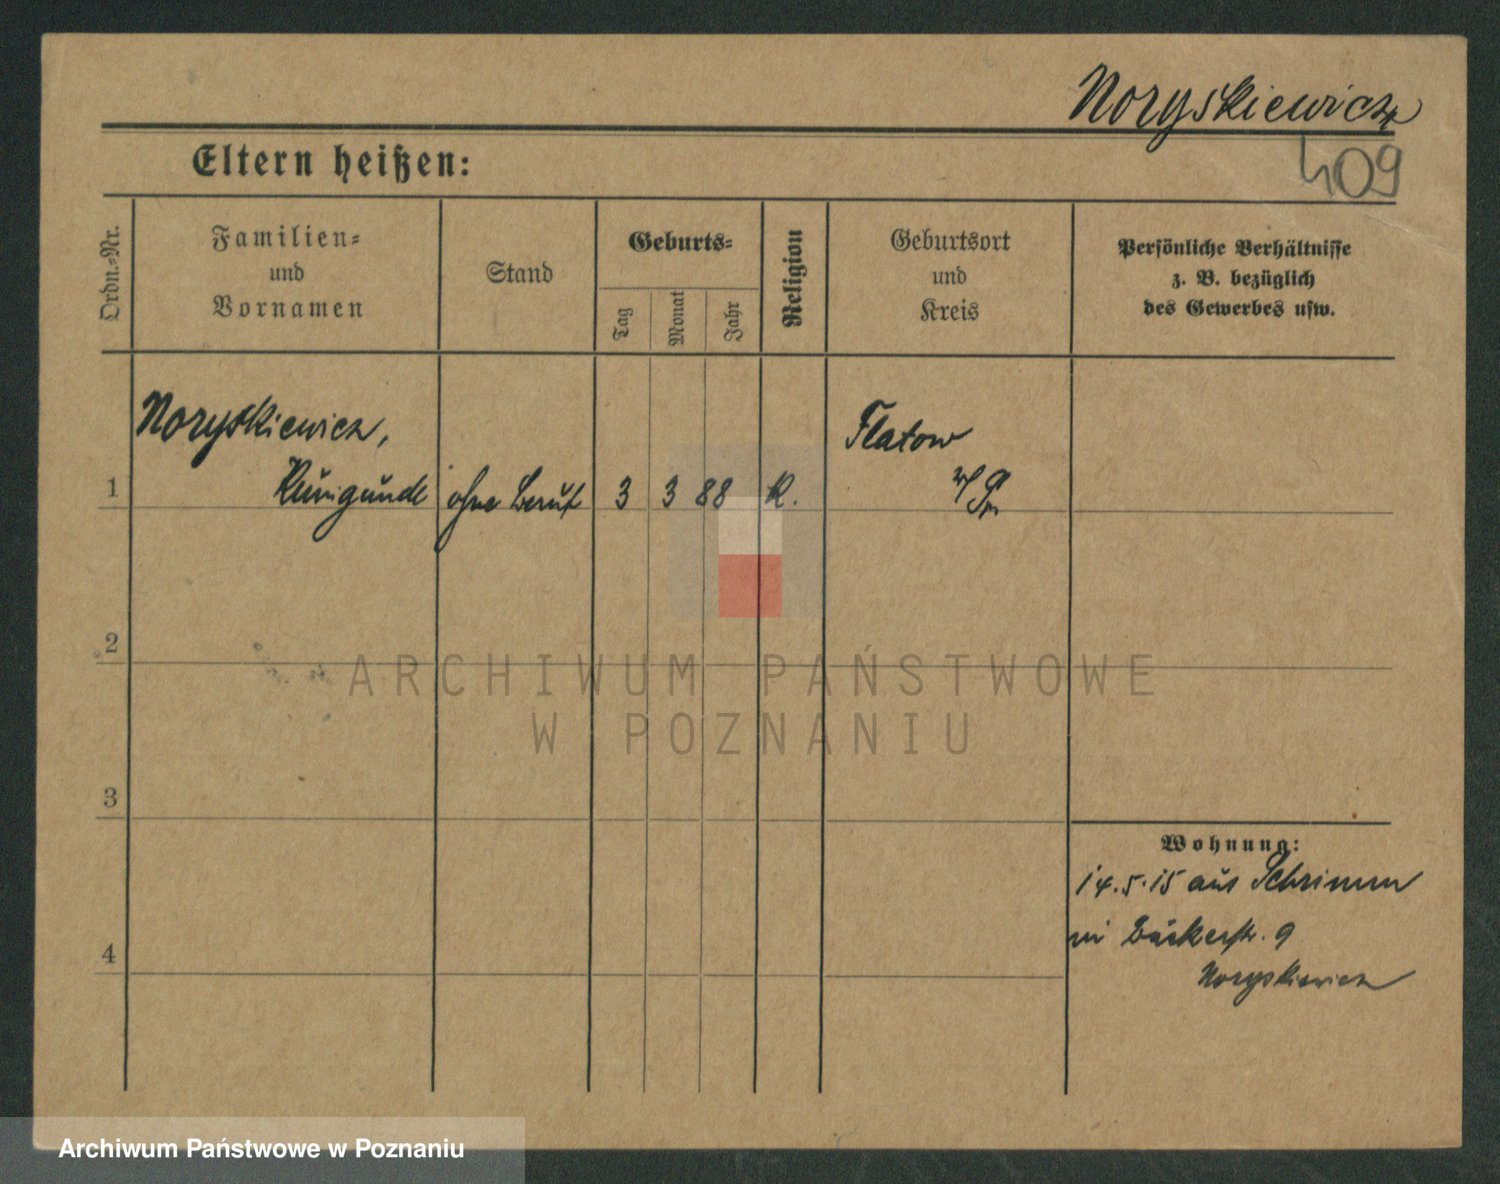 Noryskiewicz
409
Eltern heißen:
Ordn.-Nr.
Familien-
und
Vornamen
Stand
Geburts-
Tag
Monat
Jahr
Religion
Geburtsort
und
Kreis
Persönliche Verhältnisse
z. B. bezüglich
des Gewerbes usw.
Noryskiewicz,
1 Kunigunde ohne Beruf 3 3 88 K.
Flatow
w/Pr
2
ARCHIWUM PAŃSTWOWE
W POZNANIU
3
Wohnung:
14.5.15 aus Schrimm
Bäckerstr. 9
4
Noryskiewicz
Archiwum Państwowe w Poznaniu